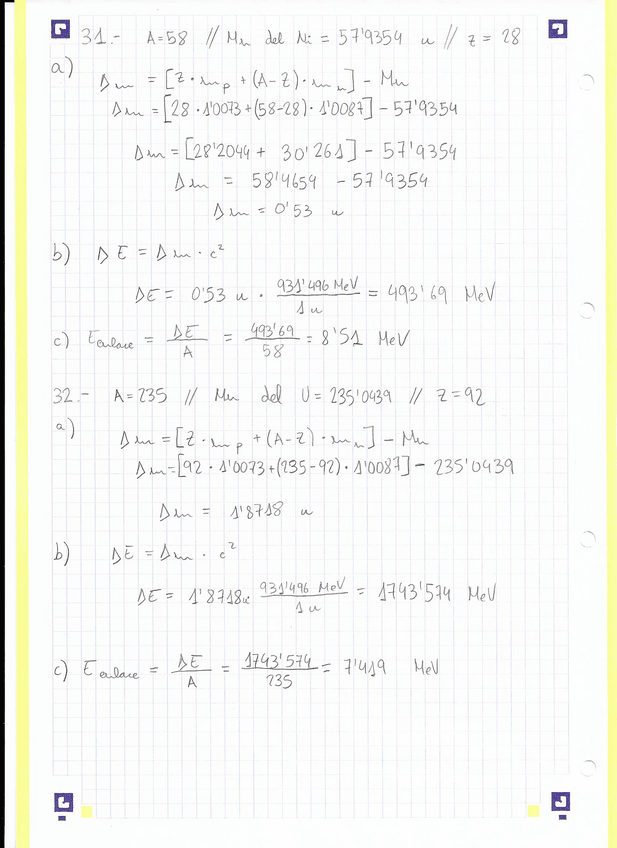 31.- A=58 // Mn del Ni = 57'9354 u // Z = 28
a)
Δm = [Z · mp + (A-Z) · mn] - Mn
Δm = [28 · 1'0073 + (58-28) · 1'0087] - 57'9354
Δm = [28'2044 + 30'261] - 57'9354
Δm = 58'4654 - 57'9354
Δm = 0'53 u
b) ΔE = Δm · c²
ΔE = 0'53 u · 931'496 MeV / 1 u = 493'69 MeV
c) Eenlace = ΔE / A = 493'69 / 58 = 8'51 MeV
32.- A=235 // Mn del U = 235'0439 // Z=92
a)
Δm = [Z · mp + (A-Z) · mn] - Mn
Δm = [92 · 1'0073 + (235-92) · 1'0087] - 235'0439
Δm = 1'8718 u
b) ΔE = Δm · c²
ΔE = 1'8718u 931'496 MeV / 1 u = 1743'574 MeV
c) Eenlace = ΔE / A = 1743'574 / 235 = 7'419 MeV